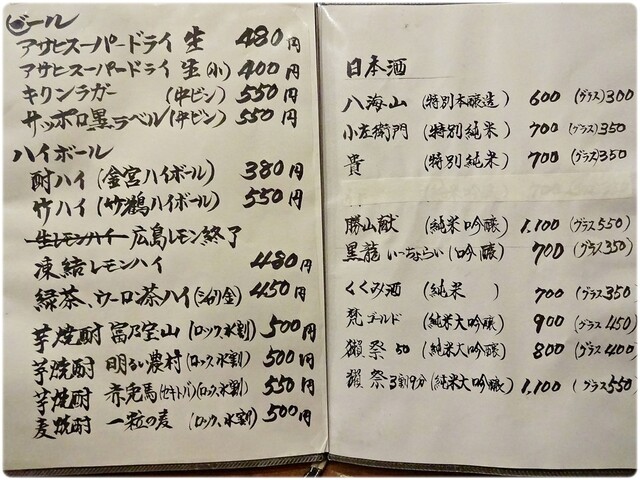 ビール
アサヒスーパードライ 生 480円
アサヒスーパードライ 生(小) 400円
キリンラガー (中ビン) 550円
サッポロ黒ラベル(中ビン) 550円
ハイボール
酎ハイ(金宮ハイボール) 380円
竹ハイ(竹鶴ハイボール) 550円
生レモンハイ 広島レモン終了
凍結レモンハイ 480円
緑茶、ウーロン茶ハイ(シャリ金) 450円
芋焼酎 富乃宝山 (ロック、水割) 500円
芋焼酎 明るい農村 (ロック、水割) 500円
芋焼酎 赤兎馬(セキトバ)(ロック、水割) 550円
麦焼酎 一粒の麦 (ロック、水割) 500円
日本酒
八海山 (特別本醸造) 600 (グラス)300
小左衛門 (特別純米) 700 (グラス)350
貴 (特別純米) 700 (グラス)350
勝山献 (純米吟醸) 1,100 (グラス550)
黒龍いっちょらい (吟醸) 700 (グラス)350
くくみ酒 (純米 ) 700 (グラス)350
梵ゴールド (純米大吟醸) 900 (グラス)450)
獺祭50 (純米大吟醸) 800 (グラス)400
獺祭3割9分 (純米大吟醸) 1,100 (グラス550)